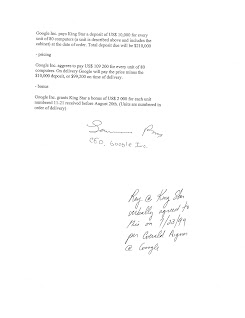 Google Inc. pays King Star a deposit of US$ 10,000 for every
unit of 80 computers (a unit is described above and includes the
cabinet) at the date of order. Total deposit due will be $210,000
- pricing
Google Inc. aggrees to pay US$ 109 200 for every unit of 80
computers. On delivery Google will pay the price minus the
$10,000 deposit, or $99,200 on time of delivery.
- bonus
Google Inc. grants King Star a bonus of US$ 2 000 for each unit
numbered 11-21 received before August 20th. (Units are numbered in
order of delivery)
CEO, Google Inc
Ray @ King Star
verbally agreed to
this on 7/23/99
per Gerald Aigner
@ Google